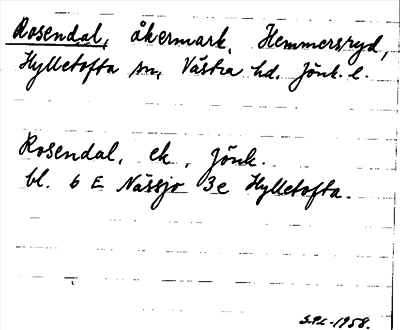 Rosendal, åkermark, Hemmersryd,
Hylletofta sn, Västra hd. Jönk. l.
Rosendal, ek, Jönk.
bl. 6 E Nässjö 3e Hylletofta.
S.P.L-1958.